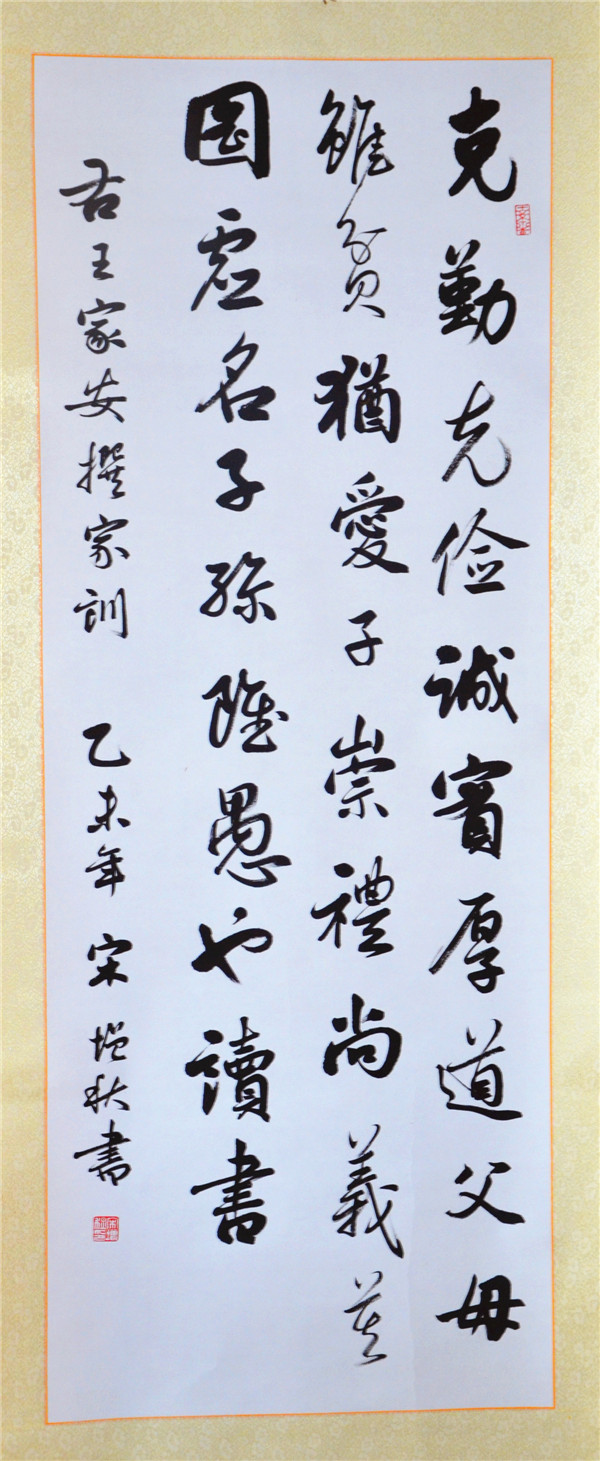 克勤克俭誠實厚道父母
雖貧猶愛子崇禮尚義莫
圖虛名子孫雖愚也讀書
右王家安撰家訓 乙未年 宋增秋書